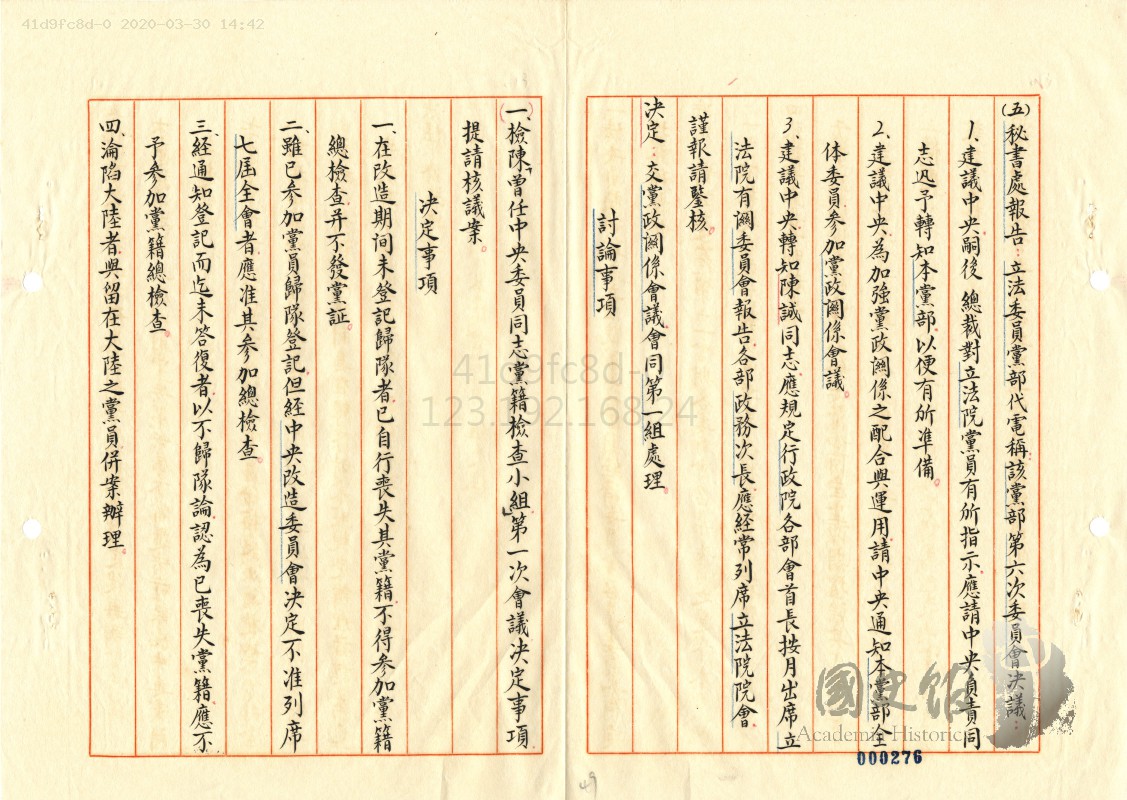 41d9fc8d-0 2020-03-30 14:42
(五)秘書處報告：立法委員黨部代電稱：該黨部第六次委員會决議：
1.建議中央嗣後　總裁對立法院黨員有所指示應請中央負責同
志迅予轉知本黨部。以便有所準備。
2.建議中央為加強黨政關係之配合與運用請中央通知本黨部全
体委員參加黨政關係會議。
3.建議中央轉知陳誠同志應規定行政院各部會首長按月出席立
法院有關委員會報告各部政務次長應經常列席立法院院會
謹報請鑒核。
决定：交黨政關係會議會同第一組處理。
討論事項
一、檢陳「曾任中央委員同志黨籍檢查小組」第一次會議决定事項。
提請核議案。
决定事項
一、在改造期间未登記歸隊者已自行喪失其黨籍不得參加黨籍
總檢查并不發黨証。
二、雖已參加黨員歸隊登記但經中央改造委員會决定不准列席
七屆全會者應准其參加總檢查。
三、經通知登記而迄未答復者以不歸隊論認為已喪失黨籍應不
予參加黨籍總檢查。
四、淪陷大陸者與留在大陸之黨員併案辦理。
41d9fc8d-
123.192.168.24
國史館
Academia Historica
000276
49